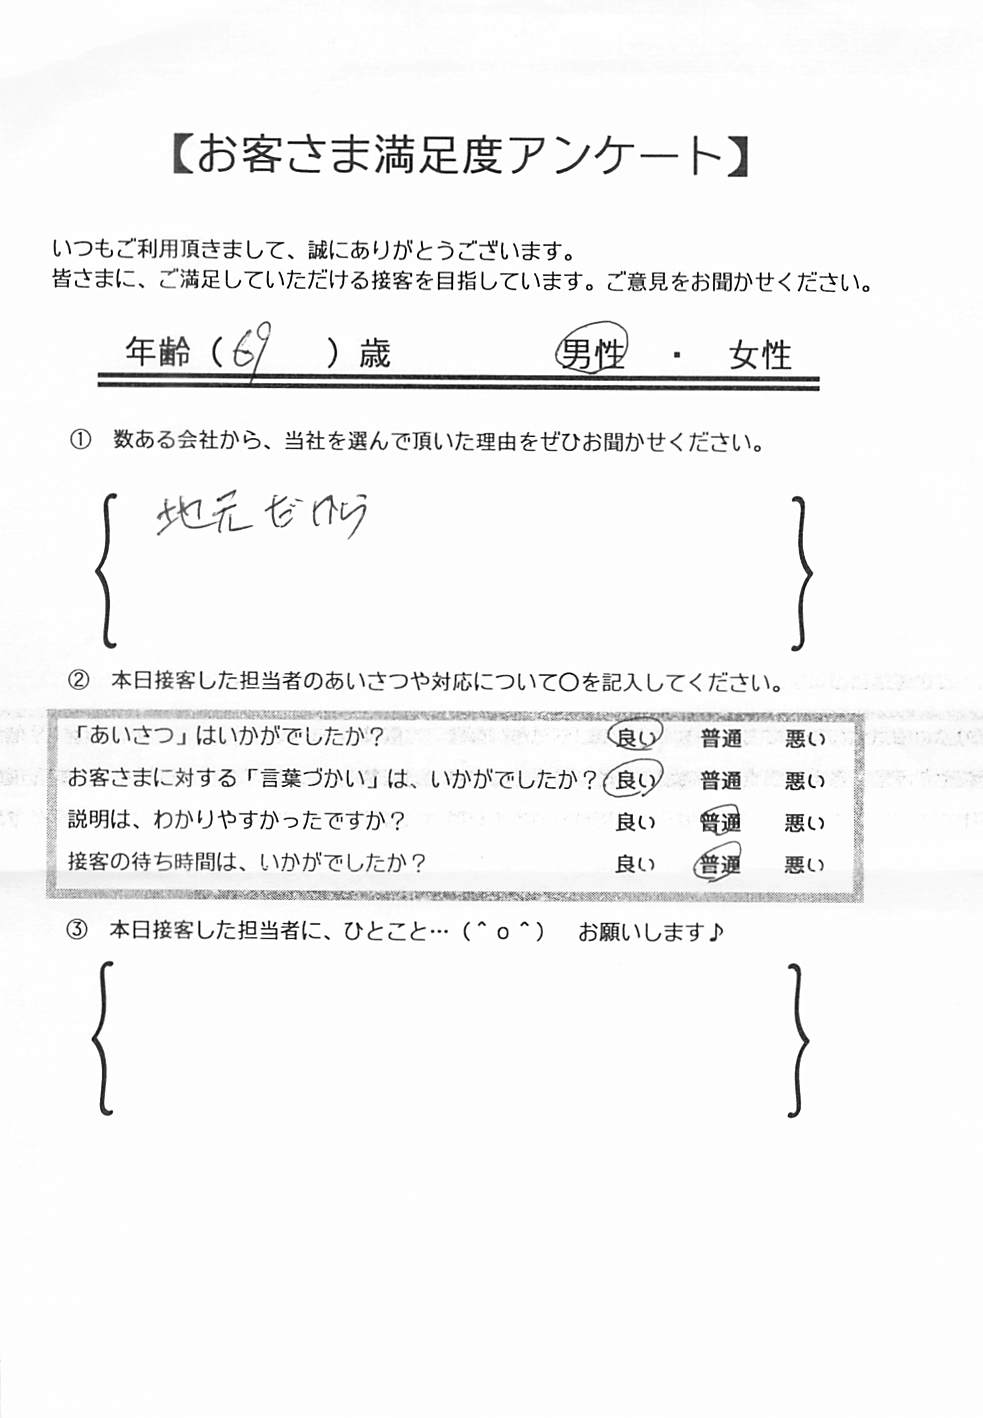 【お客さま満足度アンケート】
いつもご利用頂きまして、誠にありがとうございます。
皆さまに、ご満足していただける接客を目指しています。ご意見をお聞かせください。
年齢（69　）歳　男性　・　女性
①　数ある会社から、当社を選んで頂いた理由をぜひお聞かせください。
地元だから
②　本日接客した担当者のあいさつや対応について〇を記入してください。
「あいさつ」はいかがでしたか？　良い　普通　悪い
お客さまに対する「言葉づかい」は、いかがでしたか？　良い　普通　悪い
説明は、わかりやすかったですか？　良い　普通　悪い
接客の待ち時間は、いかがでしたか？　良い　普通　悪い
③　本日接客した担当者に、ひとこと…（＾ｏ＾）　お願いします♪